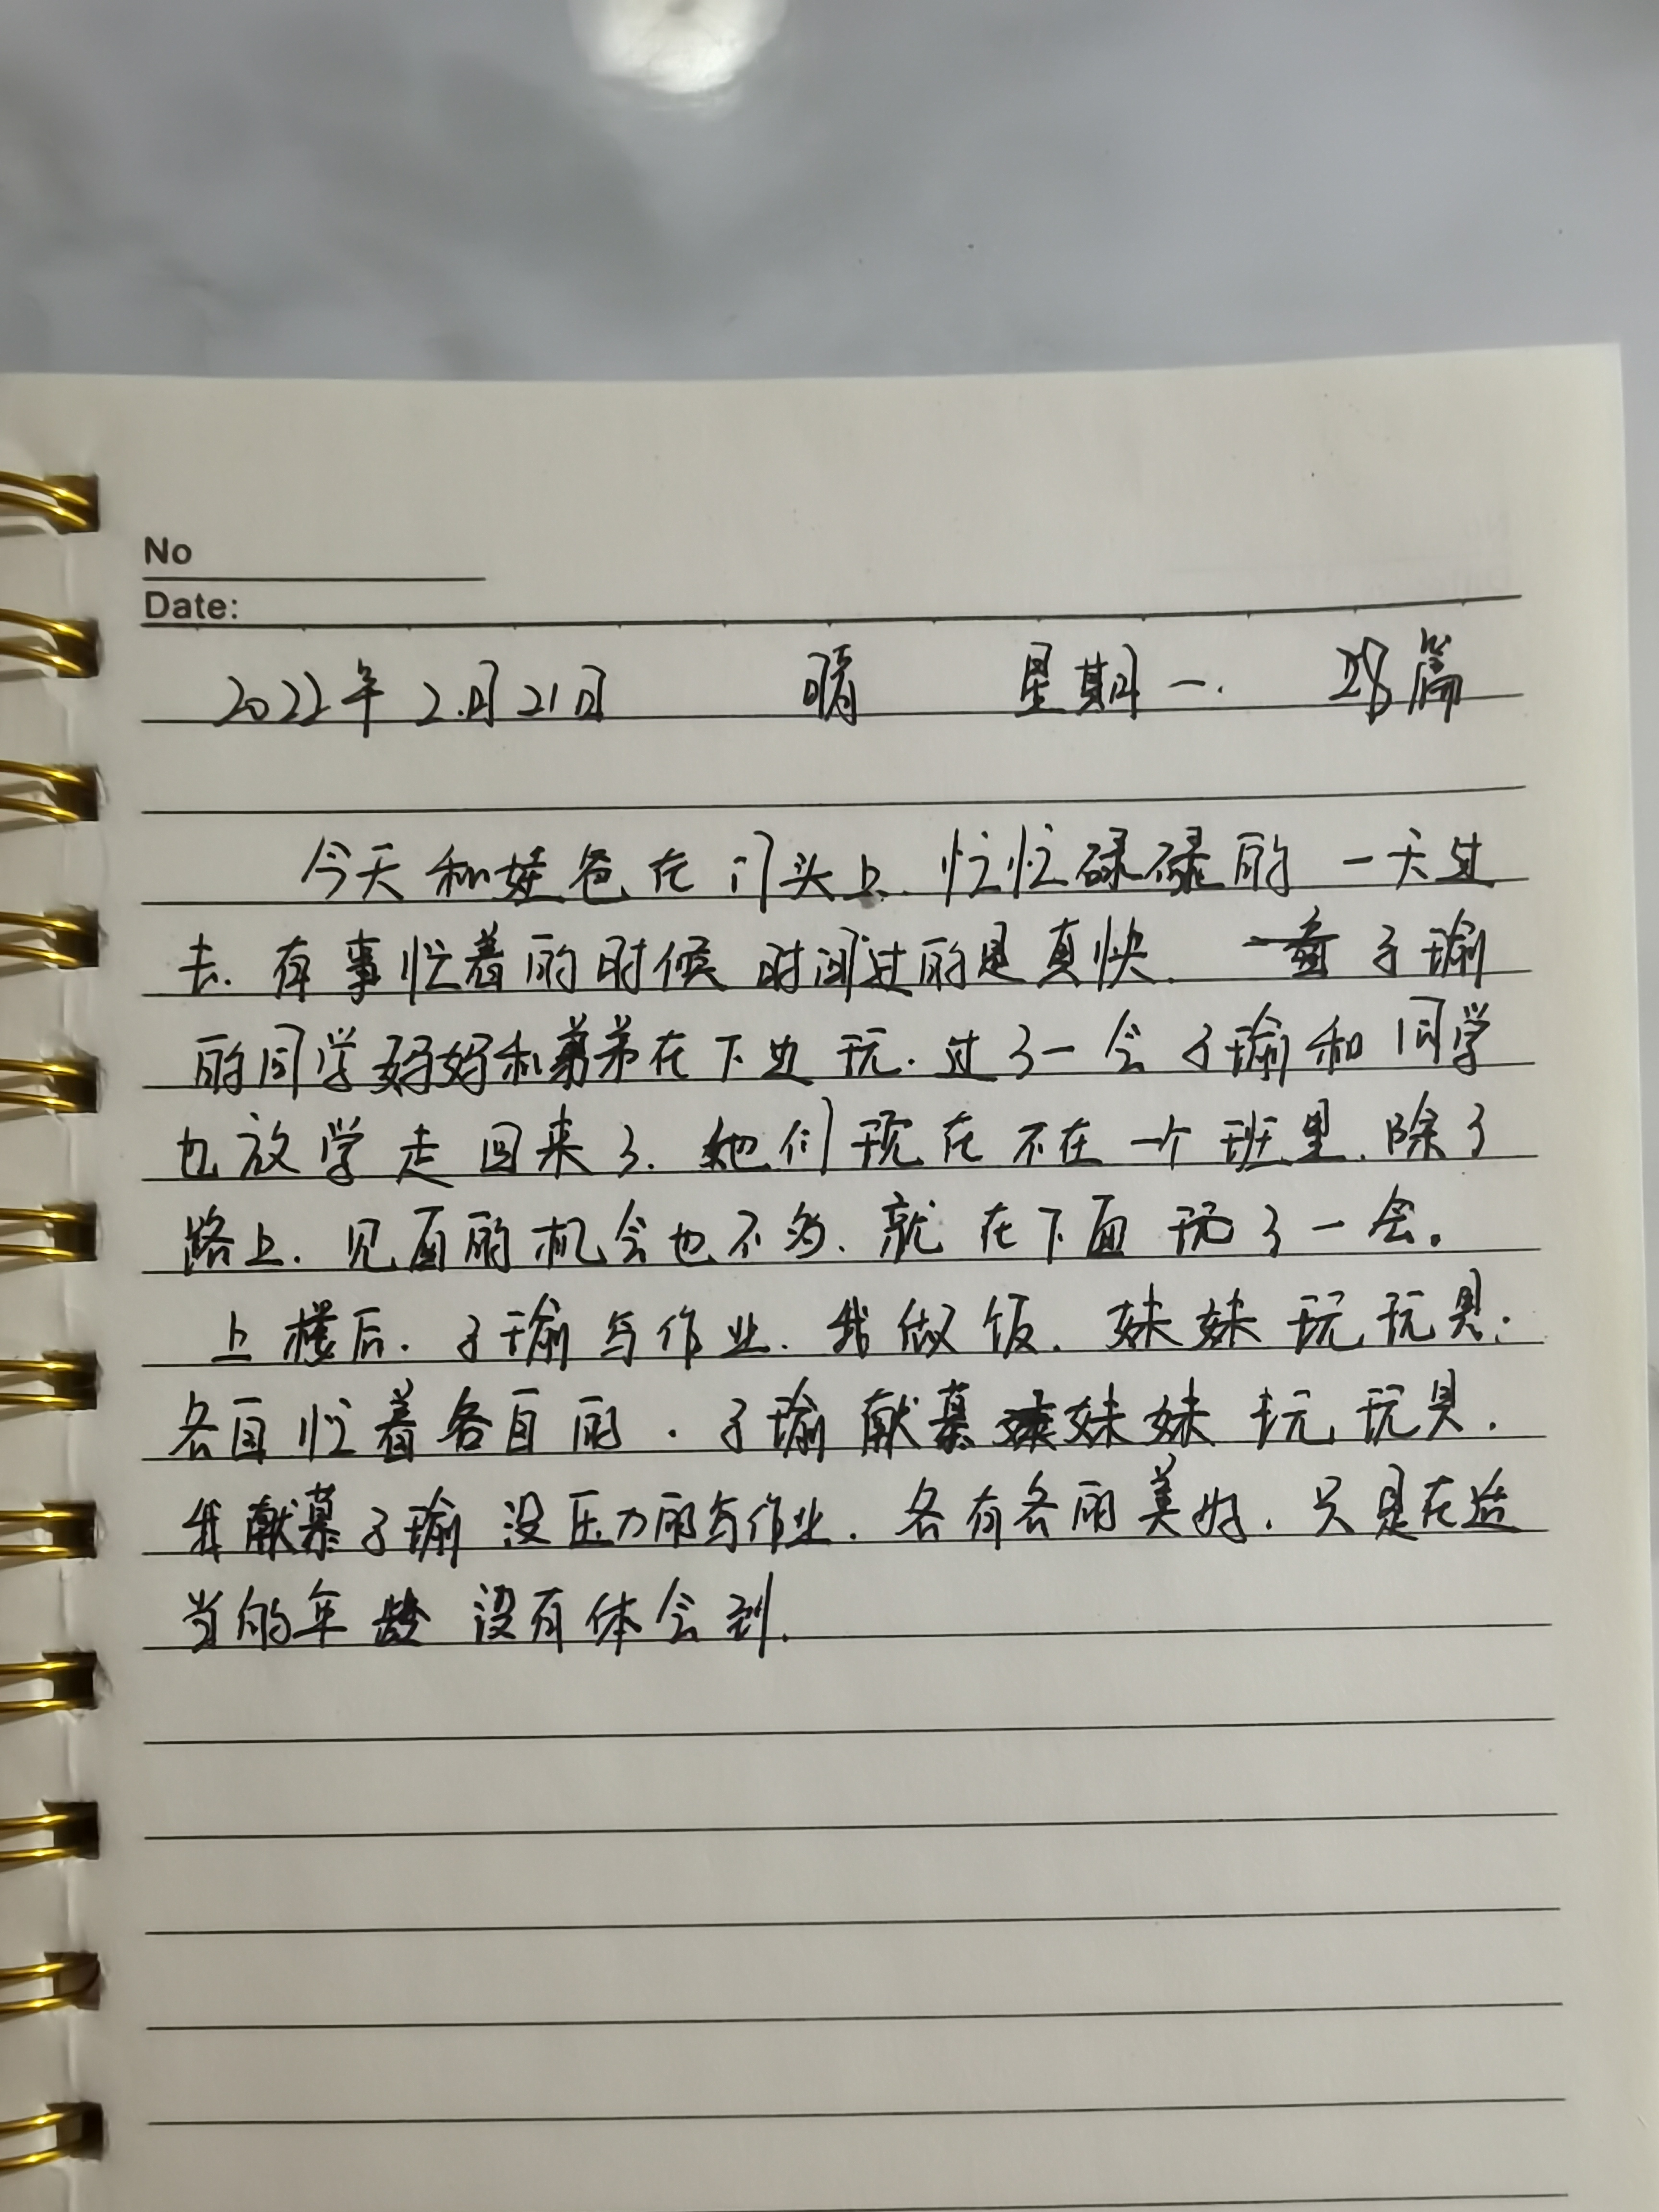 No
Date:
2022年2月21日 晴 星期一. 28篇
今天和娃爸在门头上.忙忙碌碌的一天过
去.有事忙着的时候时间过的是真快. 子瑜
的同学妈妈和弟弟在下边玩.过了一会子瑜和同学
也放学走回来了.她们现在不在一个班里.除了
路上.见面的机会也不多.就在下面玩了一会。
上楼后.子瑜写作业.我做饭.妹妹玩玩具.
各自忙着各自的.子瑜献慕妹妹玩玩具.
我献慕子瑜没压力的写作业.各有各的美好.只是在适
当的年龄没有体会到.